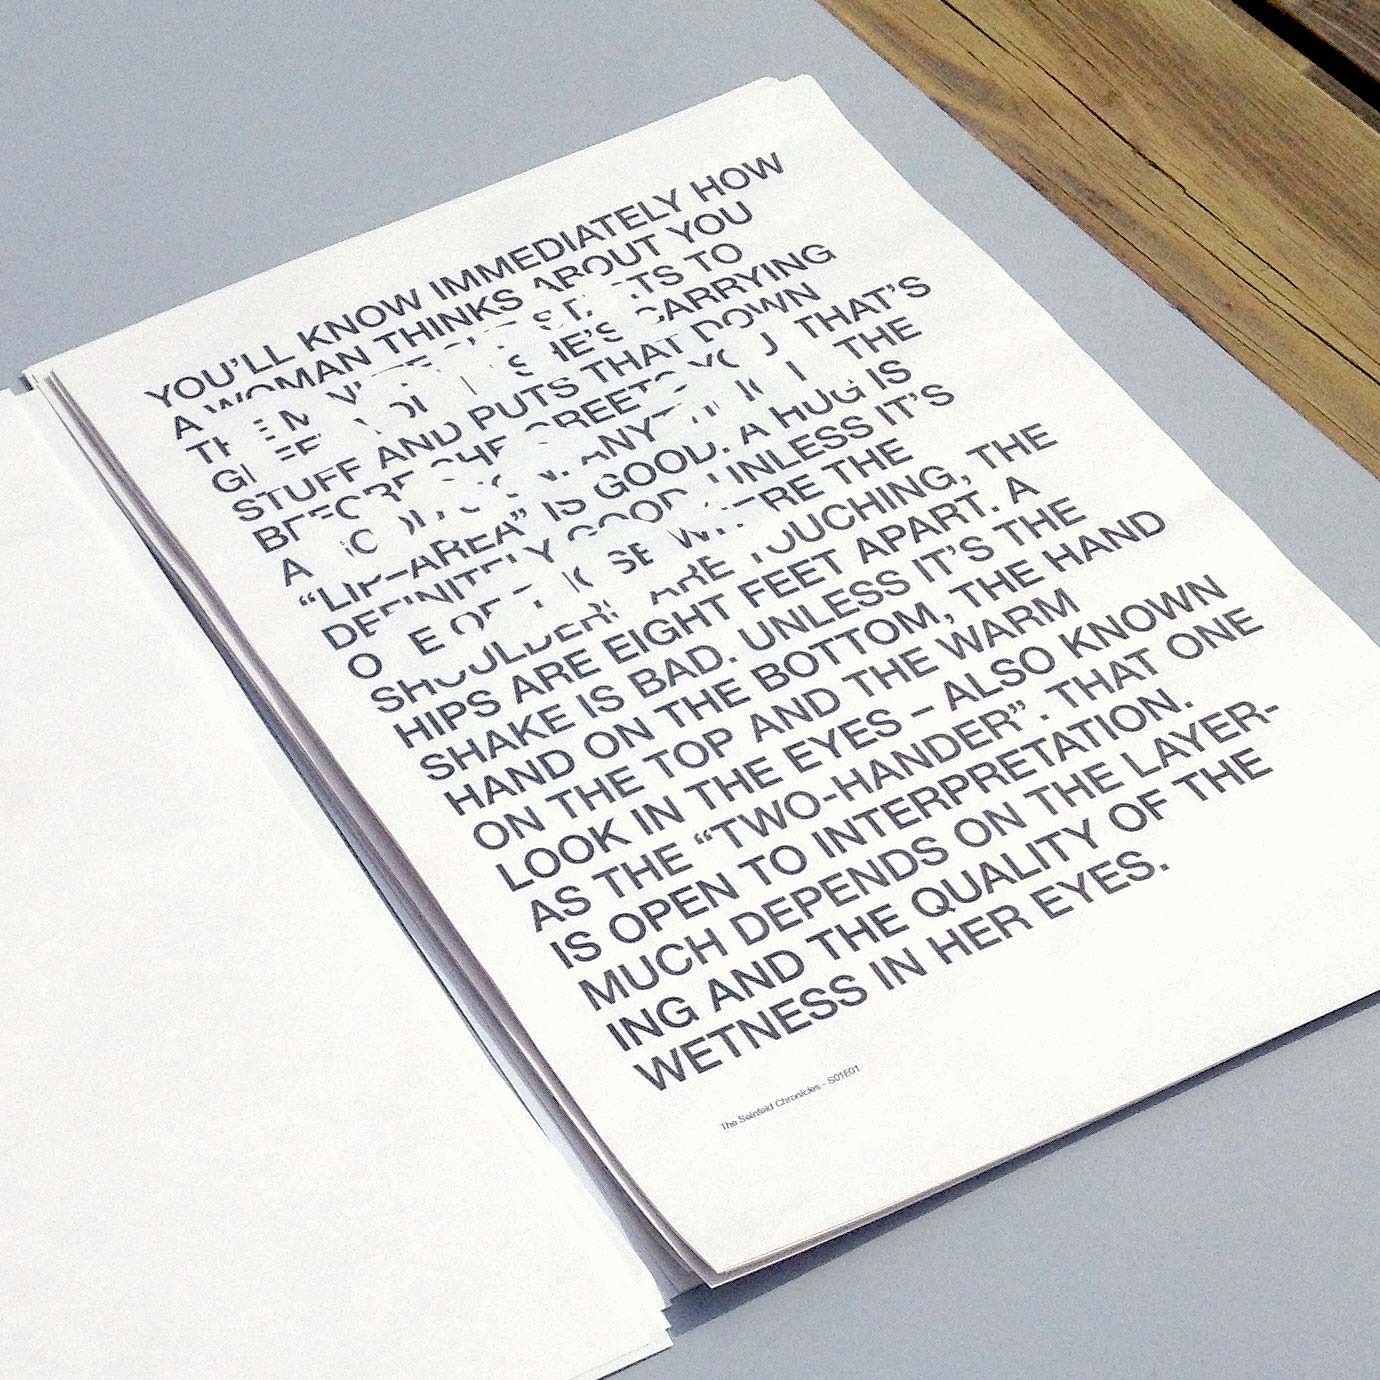 YOU'LL KNOW IMMEDIATELY HOW
A WOMAN THINKS ABOUT YOU
TO
CARRYING
STUFF AND PUTS THAT DOWN
BEFORE SHE GREETS YOU THAT'S
A THE
“LIP–AREA” IS GOOD. A HUG IS
DEFINITELY GOOD UNLESS IT'S
ONE OF THOSE WHERE THE
SHOULDERS ARE TOUCHING, THE
HIPS ARE EIGHT FEET APART. A
SHAKE IS BAD. UNLESS IT'S THE
HAND ON THE BOTTOM, THE HAND
ON THE TOP AND THE WARM
LOOK IN THE EYES – ALSO KNOWN
AS THE “TWO-HANDER” . THAT ONE
IS OPEN TO INTERPRETATION.
MUCH DEPENDS ON THE LAYER-
ING AND THE QUALITY OF THE
WETNESS IN HER EYES.
The Seinfeld Chronicles - S01E01